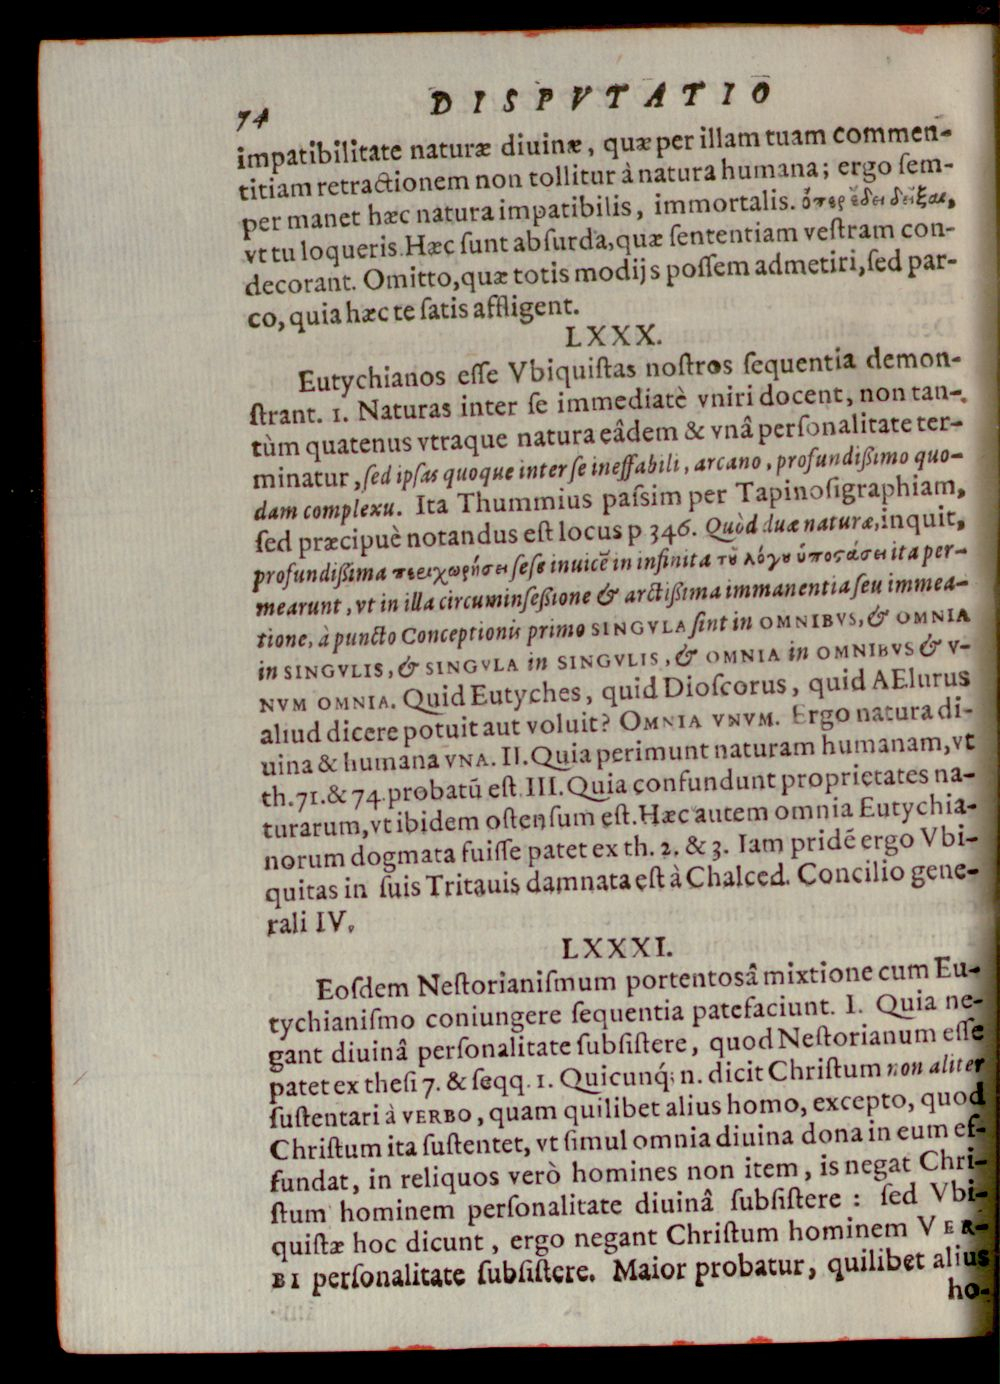 74 DISPVTATIO
impatibilitate naturæ diuinæ, quæ per illam tuam commen-
titiam retractionem non tollitur à natura humana; ergo ſem-
per manet hæc natura impatibilis, immortalis. ὅπερ ἔδει δεῖξαι,
vt tu loqueris. Hæc ſunt abſurda, quæ ſententiam veſtram con-
decorant. Omitto, quæ totis modijs poſſem admetiri, ſed par-
co, quia hæc te ſatis affligent.
LXXX.
Eutychianos eſſe Vbiquiſtas noſtros ſequentia demon-
ſtrant. 1. Naturas inter ſe immediatè vniri docent, non tan-
tùm quatenus vtraque natura eâdem & vnâ perſonalitate ter-
minatur, ſed ipſas quoque inter ſe ineffabili, arcano, profundißimo quo-
dam complexu. Ita Thummius paſsim per Tapinoſigraphiam,
ſed præcipuè notandus eſt locus p 346. Quòd duæ naturæ, inquit,
profundißima περιχωρήσει ſeſe inuicē in infinita τȣ͂ λόγȣ ὑποϛάσει ita per-
mearunt, vt in illa circuminſeßione & arctißima immanentia ſeu immea-
tione, à puncto Conceptionis primo SINGVLA ſint in OMNIBVS, & OMNIA
in SINGVLIS, & SINGVLA in SINGVLIS, & OMNIA in OMNIBVS & V-
NVM OMNIA. Quid Eutyches, quid Dioſcorus, quid AElurus
aliud dicere potuit aut voluit? OMNIA VNVM. Ergo natura di-
uina & humana VNA. II. Quia perimunt naturam humanam, vt
th. 71. & 74. probatū eſt. III. Quia confundunt proprietates na-
turarum, vt ibidem oſtenſum eſt. Hæc autem omnia Eutychia-
norum dogmata fuiſſe patet ex th. 2. & 3. Iam pridē ergo Vbi-
quitas in ſuis Tritauis damnata eſt à Chalced. Concilio gene-
rali IV.
LXXXI.
Eoſdem Neſtorianiſmum portentosâ mixtione cum Eu-
tychianiſmo coniungere ſequentia patefaciunt. I. Quia ne-
gant diuinâ perſonalitate ſubſiſtere, quod Neſtorianum eſſe
patet ex theſi 7. & ſeqq. 1. Quicunq́; n. dicit Chriſtum non aliter
ſuſtentari à VERBO, quam quilibet alius homo, excepto, quod
Chriſtum ita ſuſtentet, vt ſimul omnia diuina dona in eum ef-
fundat, in reliquos verò homines non item, is negat Chri-
ſtum hominem perſonalitate diuinâ ſubſiſtere: ſed Vbi-
quiſtæ hoc dicunt, ergo negant Chriſtum hominem VER-
BI perſonalitate ſubſiſtere. Maior probatur, quilibet alius
ho-